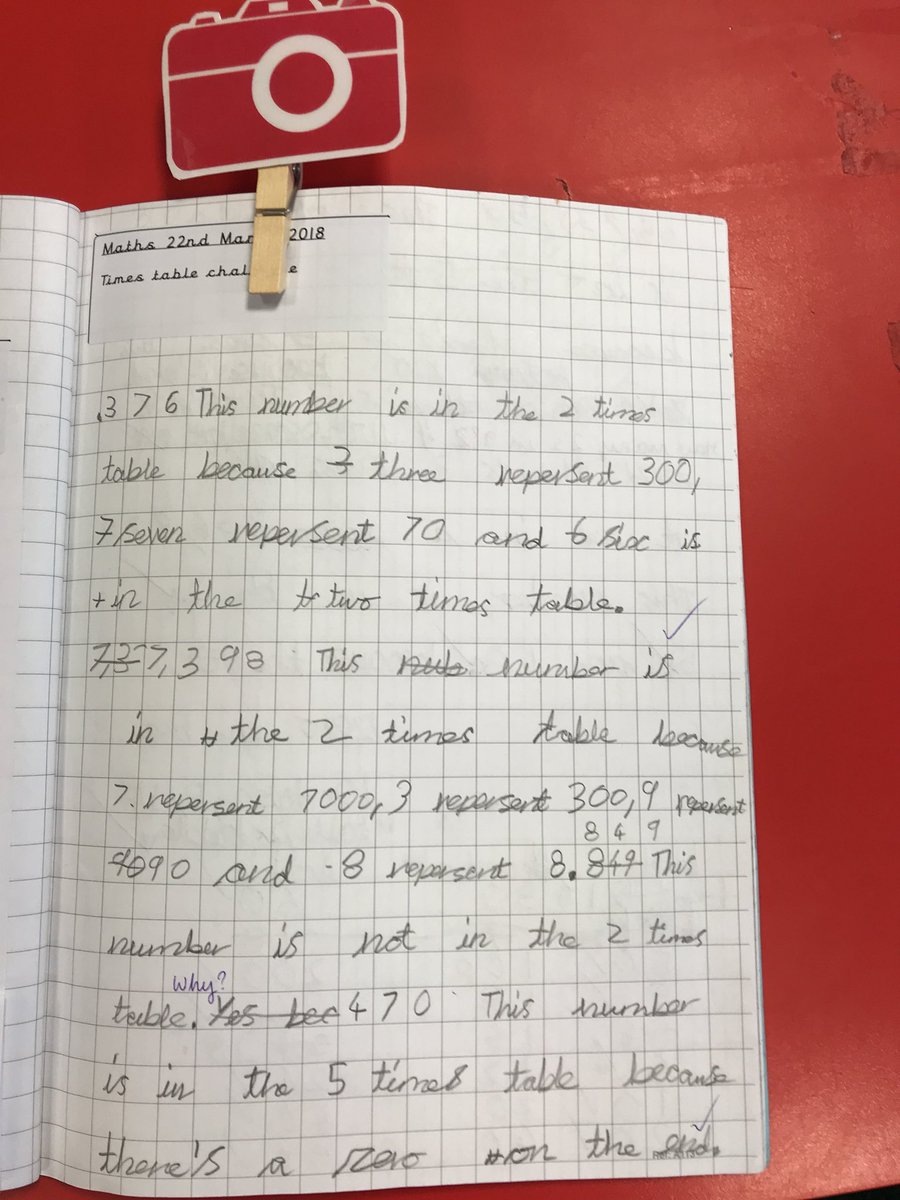 Maths 22nd Mar 2018
Times table chal e
.3 7 6 This number is in the 2 times
table because 3 three repersent 300,
7/seven repersent 70 and 6 six is
in the t two times table.
7,37 7,3 98 This nub number is
in t the 2 times table because
7. repersent 7000, 3 repersent 300, 9 repersent
8 4 9
4090 and 8 repersent 8. 849 This
number is not in the 2 times
why?
table. Yes bec 4 7 0 This number
is in the 5 times table because
there's a zero on the end.